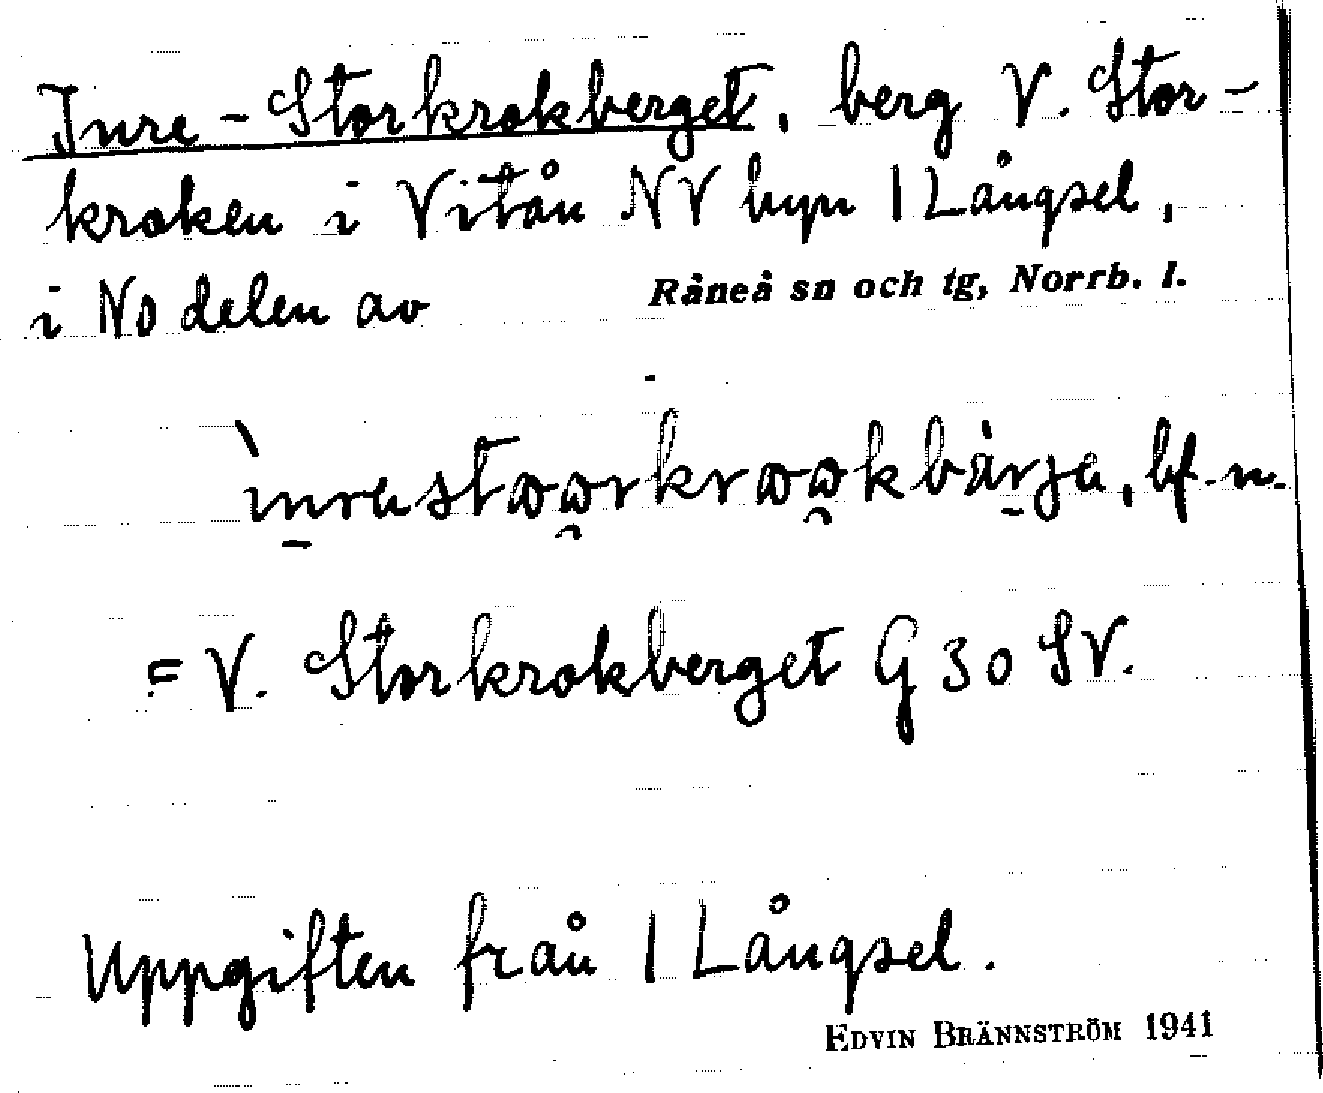 Inre-Storkrokberget, berg V. Stor-
kroken i Vitån NV byn 1 Långsel,
i NO delen av Råneå sn och tg, Norrb. l.
bf. n.
= V. Storkrokberget G 30 SV.
Uppgiften från 1 Långsel.
EDVIN BRÄNNSTRÖM 1941